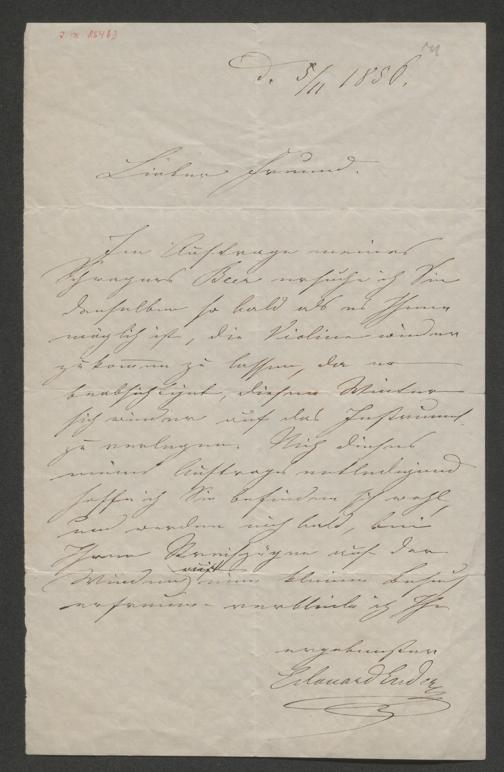 J.N. 85463
d. 5/11 1856.
Lieber Freund.
Im Auftrage meines
Schwagers Beer ersuche ich Sie
denselben so bald als es Ihnen
möglich ist, die Violine wieder
zukommen zu lassen, da er
beabsichtigt, diesen Winter
sich wieder auf das Instrument
zu verlegen. Mich dieses
meines Auftrags entledigend
hoffe ich Sie befinden sich wohl,
und werden mich bald, bei
Ihren Streifzügen auf der
Wieden mit einem kleinen Besuch
erfreuen - verbleibe ich Ihr
ergebenster
Edouard Ender